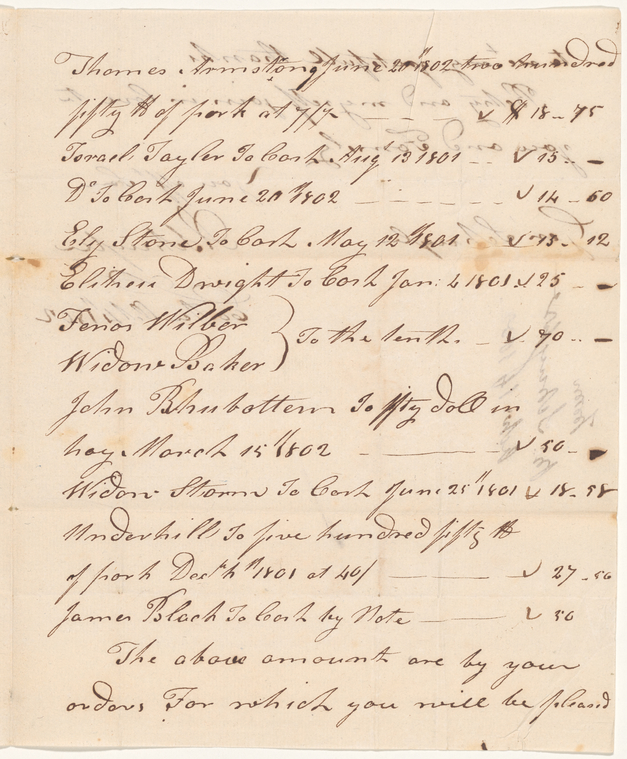 Thomas Armstong June 20th 1802 two hundred
fifty lb of pork at 7/7 — — — ✓ $ 18 - 75
Israel Tayler To Cash Aug 13 1801 - - ✓ 15 - -
Do To Cash June 20th 1802 - - - - - ✓ 14 - 60
Ely Stone To Cash May 12th 1801 - ✓ 13 - 12
Dwight To Cash Jan: 4 1801 ✓ 25 - -
Wilber
Widow Baker } To the tenth - ✓ 70 - -
John To fifty doll in
hay March 15th 1802 ——— ✓ 50 -
Widow Storm To Cash June 25th 1801 ✓ 18 - 58
Underhill To five hundred fifty lb
of pork Decr 1801 at 40/ ——— ✓ 27 - 50
James Black To Cash by Note ——— ✓ 50
The above amount are by your
orders For which you will be pleased